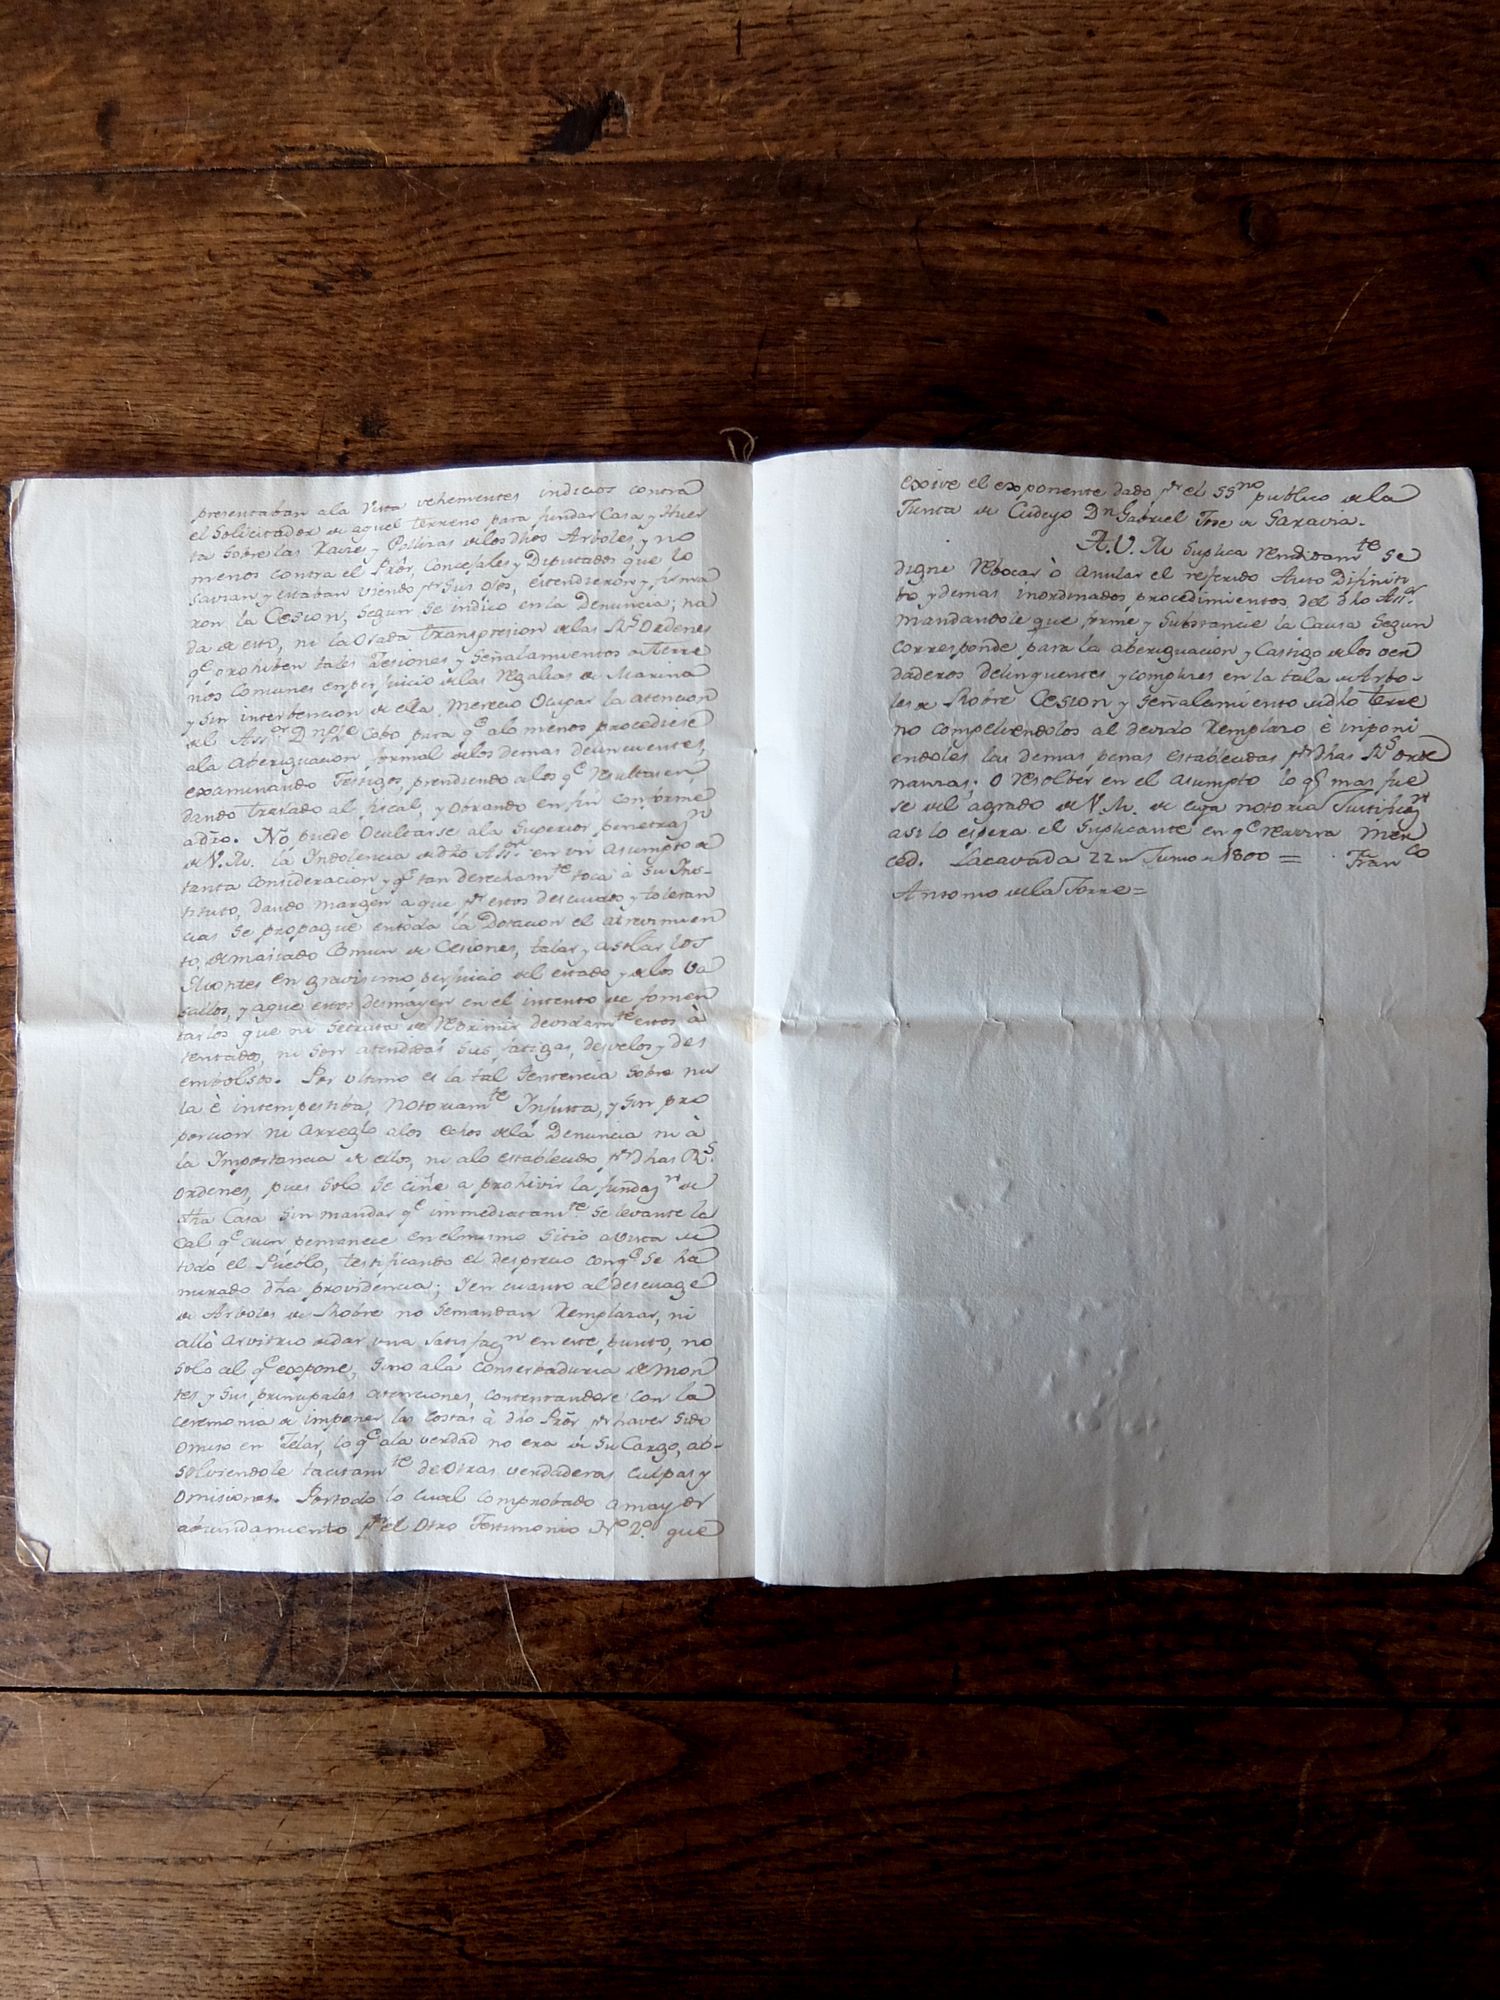 presentaban ala Vista vehementes indicios contra
el Solicitador de aquel terreno para fundar Casa y Huer
ta Sobre las Raices y de los dhos Arboles, y no
menos contra el Prôr, Concejales y Diputados que lo
savian y estaban viendo pr Sus Ojos, estendieron y firma
ron la Cesion, Segun Se indico en la Denuncia; na
da de esto, ni la Osada transgresion de las Rs Ordenes
qe prohiben tales Cesiones y Señalamientos de Terre
nos Comunes en perjuicio de las regalias de Marina
y Sin interbencion de ella, Merecio Ocupar la atencion
del Asor Dn Cobo para qe alo menos procediese
ala Aberiguacion formal de los demas delincuentes,
examinando Testigos, prendiendo a los qe resultasen
dando traslado al fiscal, y Obrando en fin Conforme
a dro. No puede Ocultarse ala Superior penetrazn
de V.M. la Indolencia de dho Asor en un asumpto de
tanta Consideracion y qe tan derechamte toca à Su Ins-
tituto, dando margen a que pr estos descuidos y toleran
cias Se propague en toda la Dotacion el atrevimien
to, demasiado Comun de Cesiones, talar y asolar los
Montes en gravisimo perjuicio del estado y de los va
sallos, y aque estos desmayen en el intento de fomen
tarlos que ni Setrata de reprimir devidamte estos à
tentados, ni Son atendidas Sus fatigas, desvelos y des
embolsos. Por ultimo es la tal Sentencia Sobre nu
la è intempestiba, Notoriamte Injusta, y Sin pro
porcion ni Arreglo a los echos de la Denuncia ni à
la Importancia de ellos, ni alo establecido pr dhas Rs
Ordenes, pues Solo Se ciñe a prohivir la fundazn de
dha Casa Sin mandar qe immediatamte Se levante la
Cal qe aun permanece en el mismo Sitio a vista de
todo el Pueblo, testificando el desprecio con qe Se ha
mirado dha providencia; Y en cuanto al descuage
de Arboles de Robre no Semandan Remplazar, ni
allò arvitrio de dar una Satisfazn en este punto, no
Solo al qe expone, Sino ala Conserbaduria de Mon
tes y Sus principales atenciones, contentandose con la
ceremonia de imponer las costas à dho Prôr pr haver Sido
Omiso en Zelar, lo qe ala verdad no era de Su Cargo, ab-
solviendole tacitamte de Otras verdaderas culpas y
Omisiones. Por todo lo cual comprobado a mayor
abundamiento pr el Otro Testimonio No 2o que
exive el exponente dado pr el SSno publico de la
Junta de Cudeyo Dn Gabriel Jose de Garavia.
A.V.M. Suplica rendidamte Se
digne Rebocar ò Anular el referido Auto Difiniti
bo y demas inordinados procedimientos del dho Asor
mandandole que forme y Substancie la Causa Segun
corresponde para la aberiguacion y Castigo de los ver
daderos delinquentes y complices en la tala de Arbo-
les de Robre Cesion y Señalamiento de dho terre
no compeliendolos al devido Remplazo è inponi
endoles las demas penas establecidas pr dhas Rs Orde
nanzas; O resolber en el asumpto lo qe mas fue
se del agrado de V.M. de cuya notoria Justificazn
asi lo espera el Suplicante en qe recivira mer
ced. Lacavada 22 de Junio de 1800 = Franco
Antonio de la Torre =